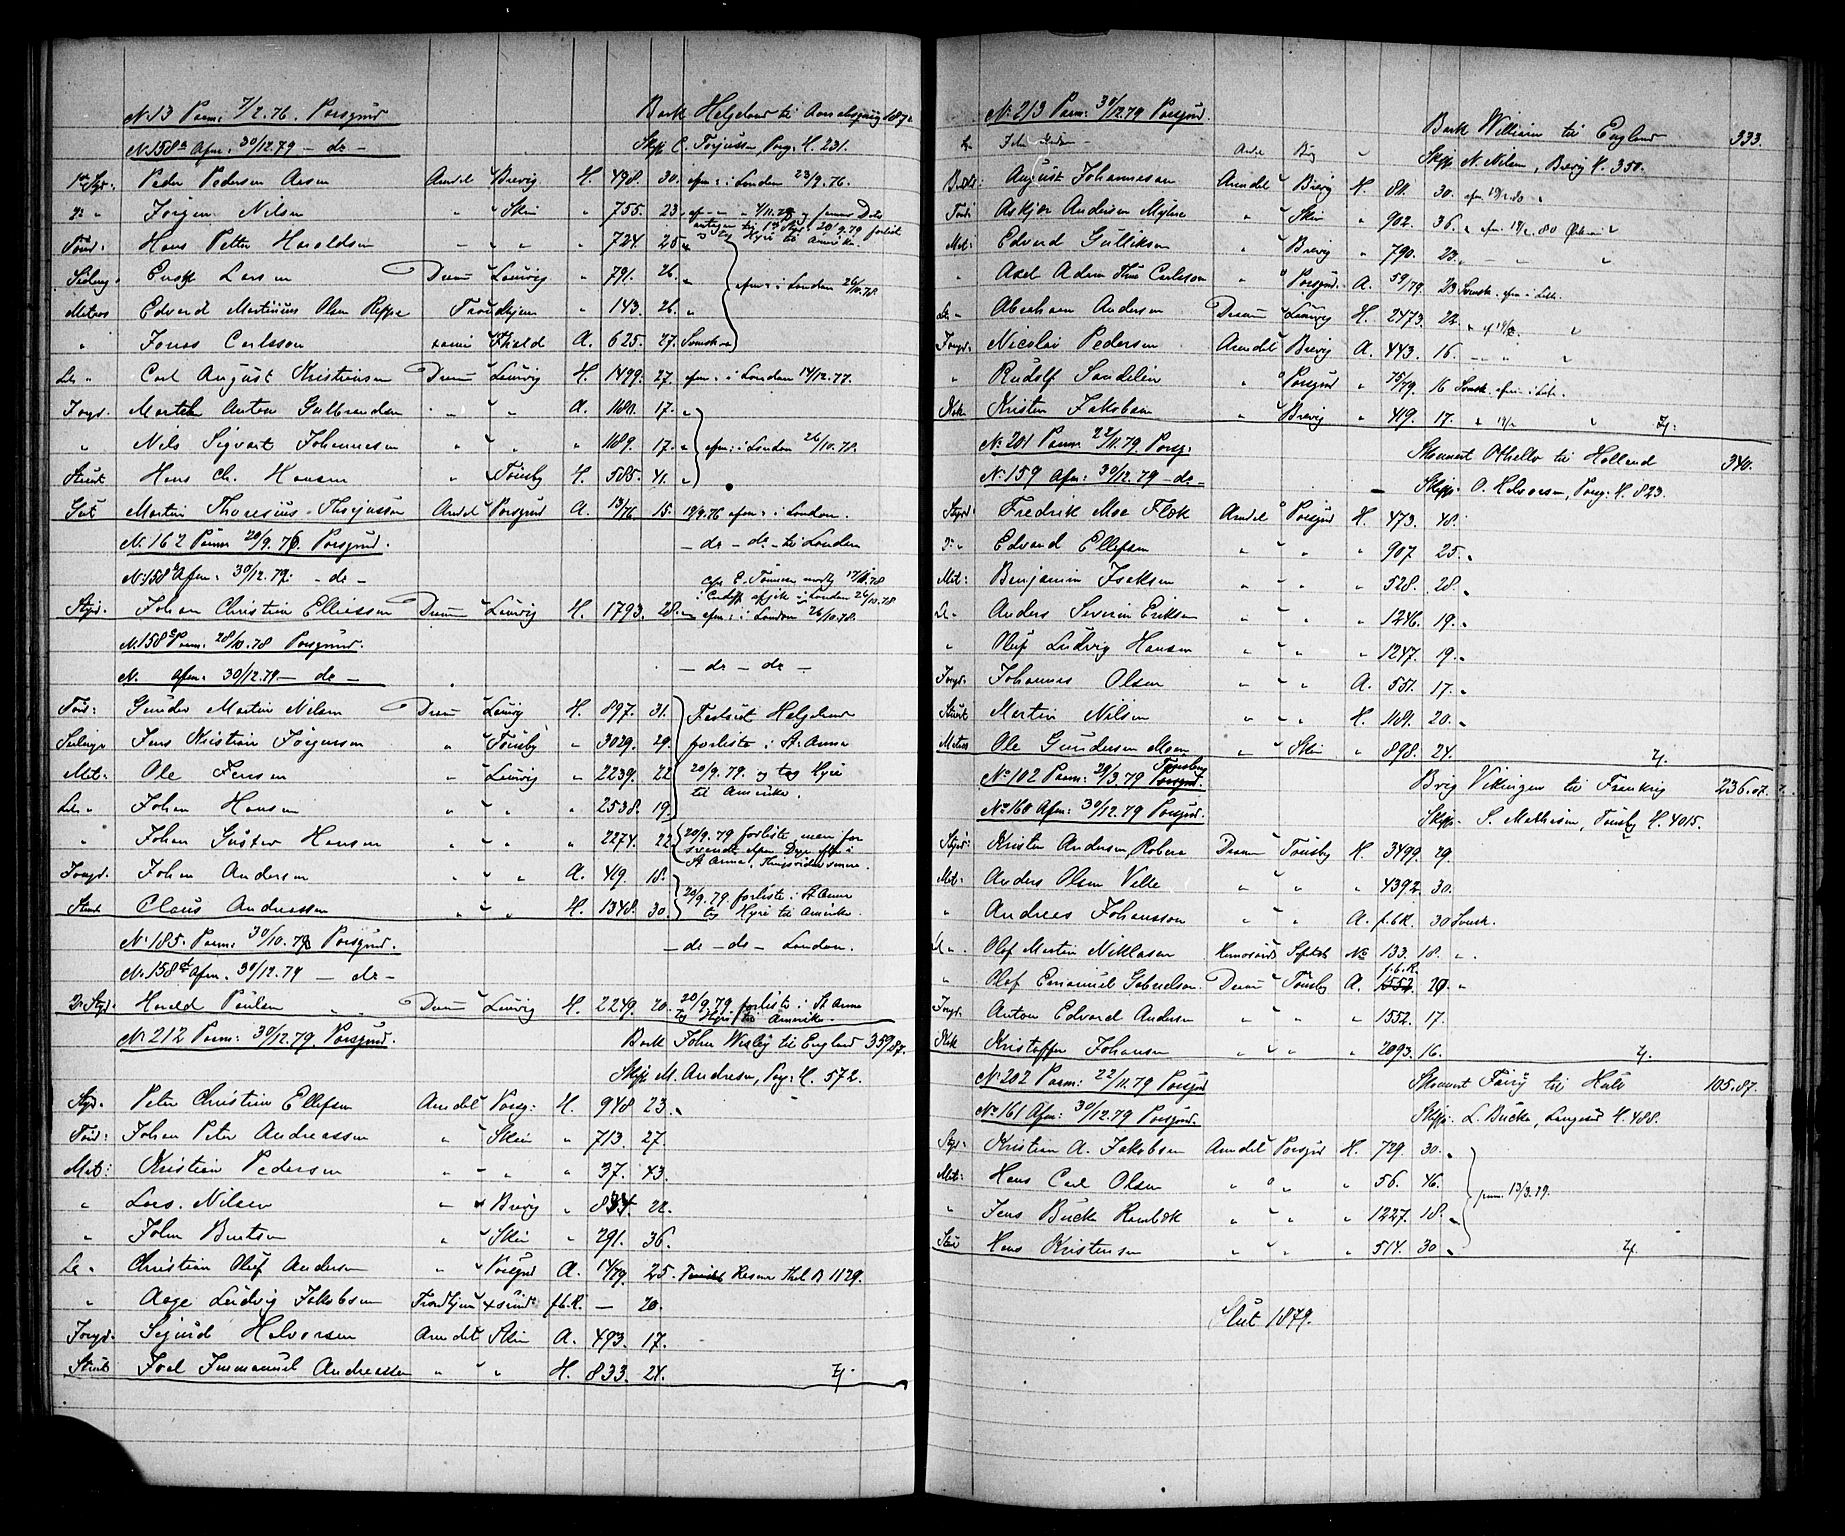 N. 13 Paam: 7/2.76. Porsgrund
Bark Helgeland til
N. 158a Afm: 30/12.79 — do —
Skipp C. Torjussen, Porsg: H. 231.
1ste Styr: Peder Pedersen Aasen Arendal Brevig H. 498. 30. afm: i London 23/9.76.
2" " Jørgen Nilsen " " Skien " 755. 23
Tømd: Hans Petter Haraldsen " " " 724 25 "
Seilmg: Larsen Dram Laurvig " 791. 26. "
afm: i London 26/10.78
Matros Edvard Martinius Olsen Reppe Trondhjem " 143. 26. "
" Jonas Carlsson A. 625. 27. Svensk
Let " Carl August Kristiansen Dram Laurvig H. 1499. 27. afm: i London 14/12.77.
Jngd. Anton Gulbrandsen " " " A. 1180. 17. "
" Nils Sigvart Johannesen " " " 1189. 17. " afm: i London 26/10.78.
Stuert Hans Chr. Hansen " Tønsby H. 585. 41. "
Gut Martin Thoresius Thorjussen Arendal Porsgrund A. 13/76 15. 12/9.76 afm: i London.
N. 162 Paam 20/9.76. Porsgrund.
— do — do — til London
N. 158b Afm: 30/12.79. — do —
Styrd: Johan Christian Elliassen Dram Laurvig H. 1793. 28. — afm: i London 26/10.78.
N. 158c Paam: 28/10.78 Porsgrund.
N. Afm: 30/12.79 — do —
— do — do —
Tømd: Gunder Martin Nilsen Dram Laurvig H. 897. 31. Helgeland
Seilmgr Jens Kristian Jørgensen " Tønsby " 3029. 29. forliste i St. Anna
Mat: Ole Jensen " Laurvig " 2239. 22 20/9.79. og tog Hyre
til Amerika.
Let " Johan Hansen " " " 2538. 19.
" Johan Gustav Hansen " " " 2274. 22 20/9.79 forliste, men for
Jngd. Johan Andersen " " " A. 419. 18.
Stuert Claus Andreassen " " " H. 1348. 30. 20/9.79 forliste i St Anna
tog Hyre til Amerika.
N. 185. Paam: 30/10.78 Porsgrund.
— do — do — London.
N. 158d Afm: 30/12.79 — do —
2n Styd. Harald Paulsen Dram Laurvig H. 2249. 20. 20/9.79 forliste i St Anna
tog Hyre til Amerika.
N. 212 Paam: 30/12.79. Porsgrund.
Bark John Wesley til England 359.84.
Skipp M. Andresen, Porsg: H. 572.
Styd. Peter Christian Ellefsen Arendal Porsg: H. 948 23. "
Tømd: Johan Peter Andreassen " Skien " 713. 27.
Mat: Kristian Pedersen " " " 37. 43.
" Lars Nilsen " Brevig " 22.
" John Bentsen " Skien " 291. 36.
Let " Christian Oluf Andersen " Porsgrnd A. 14/79. 25.
" Aage Ludvig Jakobsen Trondhjem xsund f.b.R. — 20.
Jngd. Sigurd Halvorsen Arendal Skien A. 493. 17.
Stuert Joel Immanuel Andreassen " " H. 833. 24.
N. 213 Paam: 30/12.79 Porsgrd.
Bark William til England 333.
Skipp N. Nilsen, Brevig H. 350.
August Johannesen Arendal Brevig H. 811. 30.
Tømd: Asklov Andersen " Skien " 902. 36.
Mat: Edvard Gulliksen " Brevig " 790. 23.
" Axel Adam Carlsson " Porsgrund. A. 59/79. 23 Svensk.
Let " Abraham Andersen Dram Laurvig H. 2473. 22.
Jngd: Nicolai Pedersen Arendal Brevig A. 443. 16.
" Rudolf Sandelin " Porsgrund " 75/79. 16 Svensk.
Kok Kristen Jakobsen " Brevig " 419. 17.
N. 201 Paam: 22/11.79. Porsg:
Skonnert Othello til Holland 340.
N. 159 Afm: 30/12.79 — do —
Skipp. O. Halvorsen, Porsg: H. 823.
Styrd Fredrik Moe Flok Arendal Porsgrund H. 473. 48.
Edvard Ellefsen " " " 907. 25. "
Mat: Benjamin Isaksen " " " 528. 28. "
Let " Anders Severin Eriksen " " " 1246. 19. "
" Oluf Ludvig Hansen " " " 1247. 19. "
Jngd: Johannes Olsen " " " A. 551. 17. "
Stuert Martin Nilsen " " " H. 1181. 20. "
Matros Ole Gundersen Moen " " Skien " 898. 24.
N. 102 Paam: 29/3.79 Tønsberg
Brig Vikingen til Frankrig 236.07.
No 160 Afm: 30/12.79 Porsgrd.
Skipp. S. Mathisen, Tønsby H. 4015.
Styrd: Kristen Andersen Roberg Dram Tønsby H. 3499. 29.
Mat: Anders Olsen Velle " " " 4392. 30.
" Andreas Johansson " " A. f.b.R. 30 Svensk.
Let " Olof Martin Niklasen Hernøsands No 133. 18. "
" Olof Emanuel Gabrielson Dram Tønsby A. f.b.R. 1552 20. "
Jngd. Anton Edvard Andersen " " " 1552. 17.
Kok Kristoffer Johansen " " " 2093. 16.
N. 202 Paam: 22/11.79 Porsgrd
Skonnert Fairy til Hull 105.87.
No 161 Afm: 30/12.79 Porsgrd.
Skipp: L. Bucka, Langesd H. 488.
Styr: Kristian A. Jakobsen Arendal Porsgrd H. 729. 30. "
Mat: Hans Carl Olsen " " " 56. 46.
paam. 13/3.79.
" Jens Bucka Rambæk " " " 1227. 18. "
Hans Kristensen " " " 514. 30 "
Slut 1879.